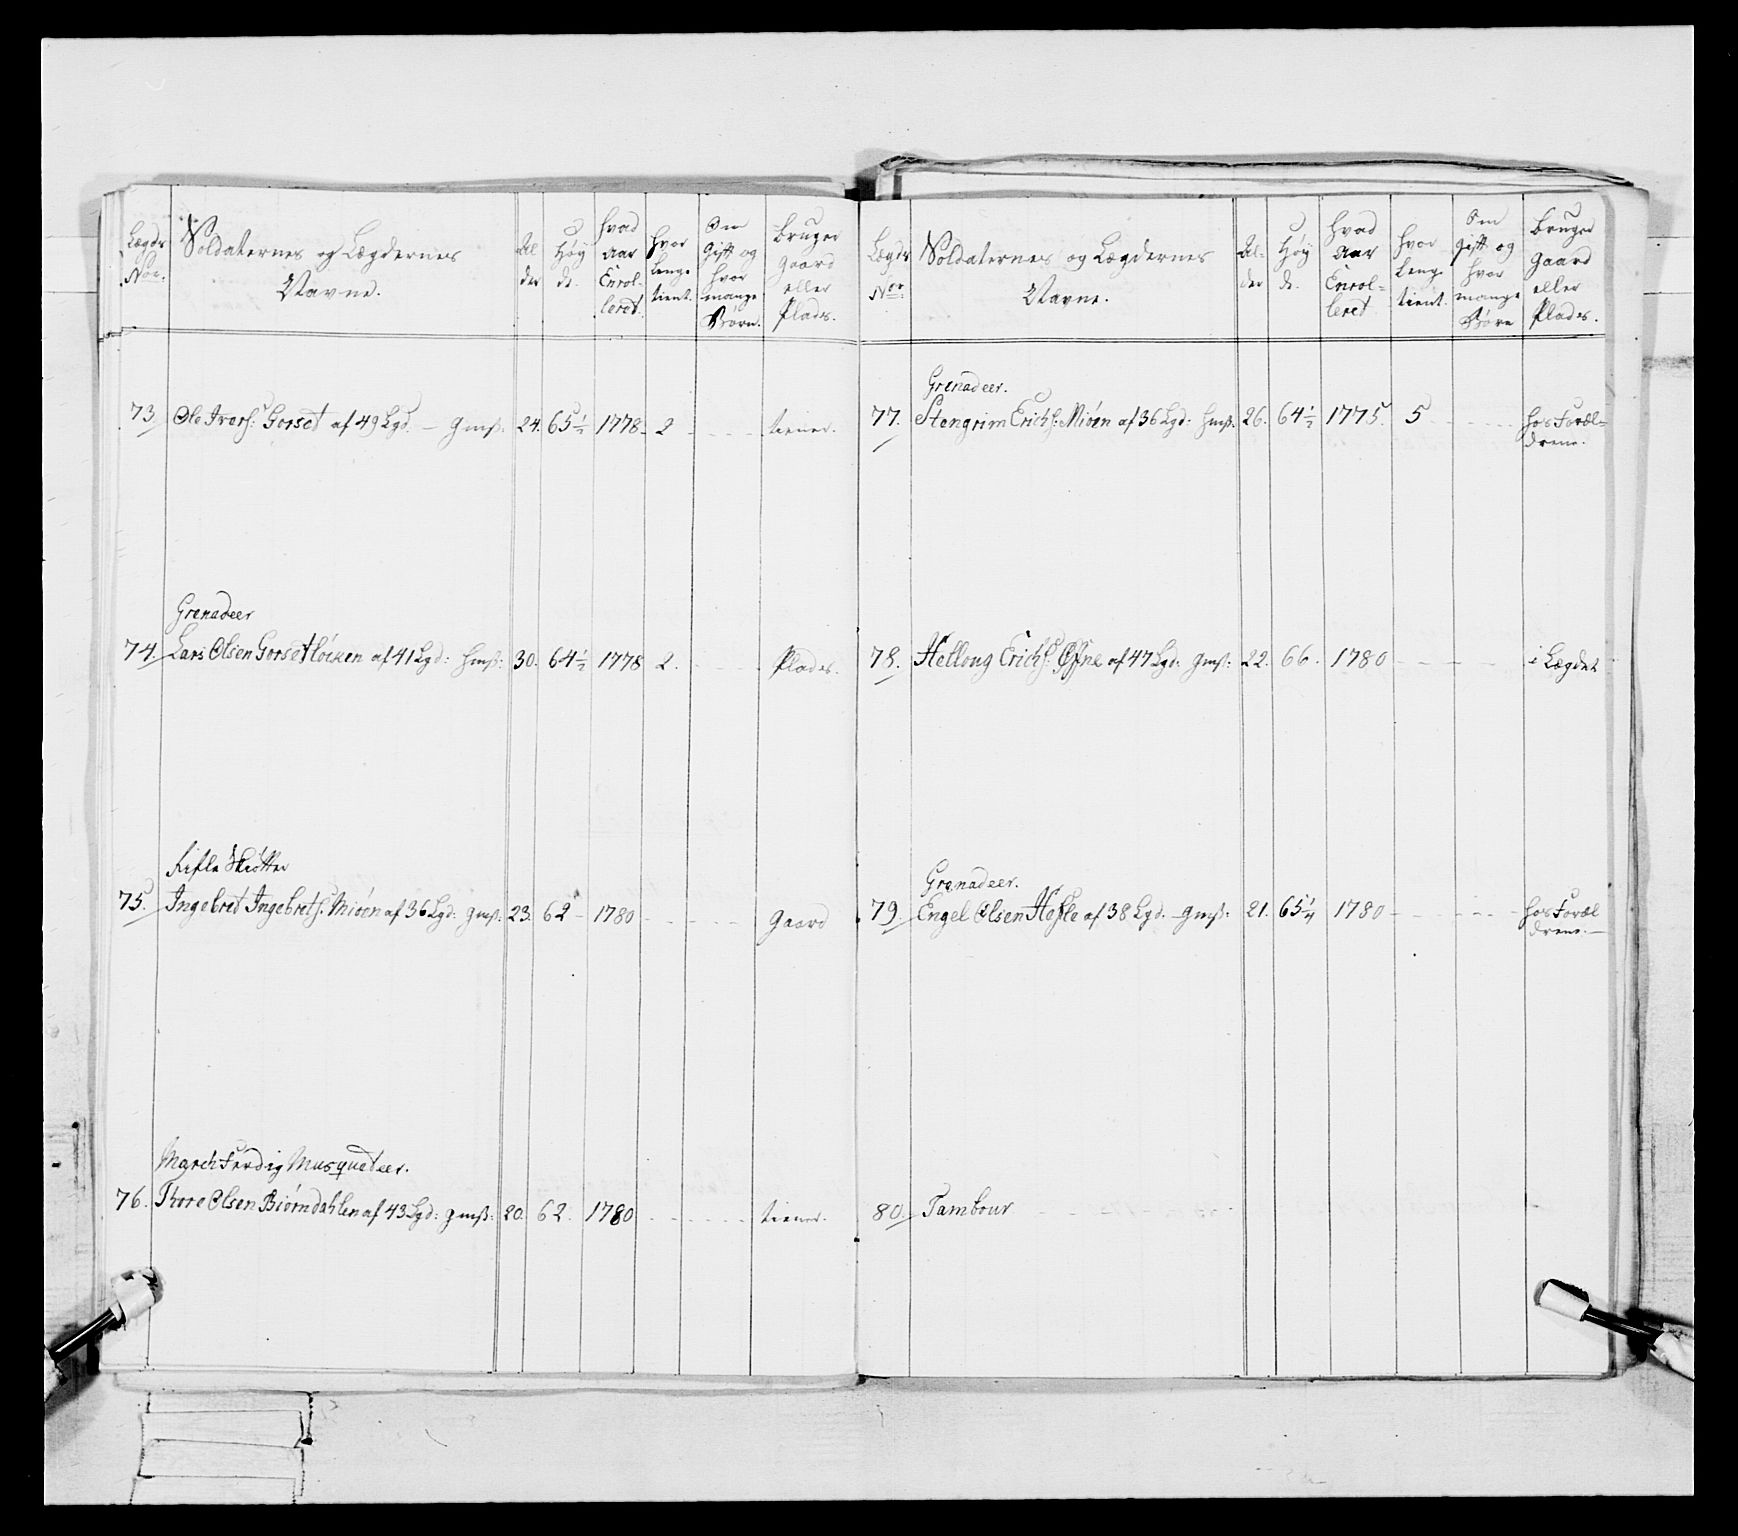 Lægds Nor.
Soldaternes og Lægdernes Navne.
Al der
Høy de.
hvad aar Enrol- leret
hvor lenge tient.
Om gift og hvor mange Børn.
bruger gaard eller Plads.
73 Ole Ivers: Gorset af 49 Lgd. — gmß. 24. 65½ 1778. 2 - - - - tiener.
Grenadeer
74. Lars Olsen Gorsetløcken af 41 Lgd: hmß: 30. 64½ 1778 2. - - - - Plads.
Rifle Skiøtter
75. Ingebret Ingebrets: Mioen af 36 Lgd: gmß: 23. 62 - 1780 - - - - gaard
March Færdig Musqueteer.
76. Thore Olsen Biørndahlen af 43 Lgd: gmß: 20. 62. 1780 - - - - - - tiener.
Lægds Nor
Soldaternes og Lægdernes Navne.
Al- der
Høy de.
hvad aar Enrol- leret
hvor lenge tient.
Om gift og hvor mange Børn
bruger gaard eller Plads.
Grenadeer.
77. Stengrim Erichs: Mioen af 36 Lgd: hmß. 26. 64½ 1775. 5 - - - - - hos Foræl-
drene.
78. Hellong Erichs: af 47 Lgd: gmß: 22. 66. 1780 - - - - i Lægdet
Grenadeer.
79. Engel Olsen Hefle af 38 Lgd. — gmß: 21. 65¼ 1780 - - - - - hos Foræl
drene. —
80. Tambour - - -